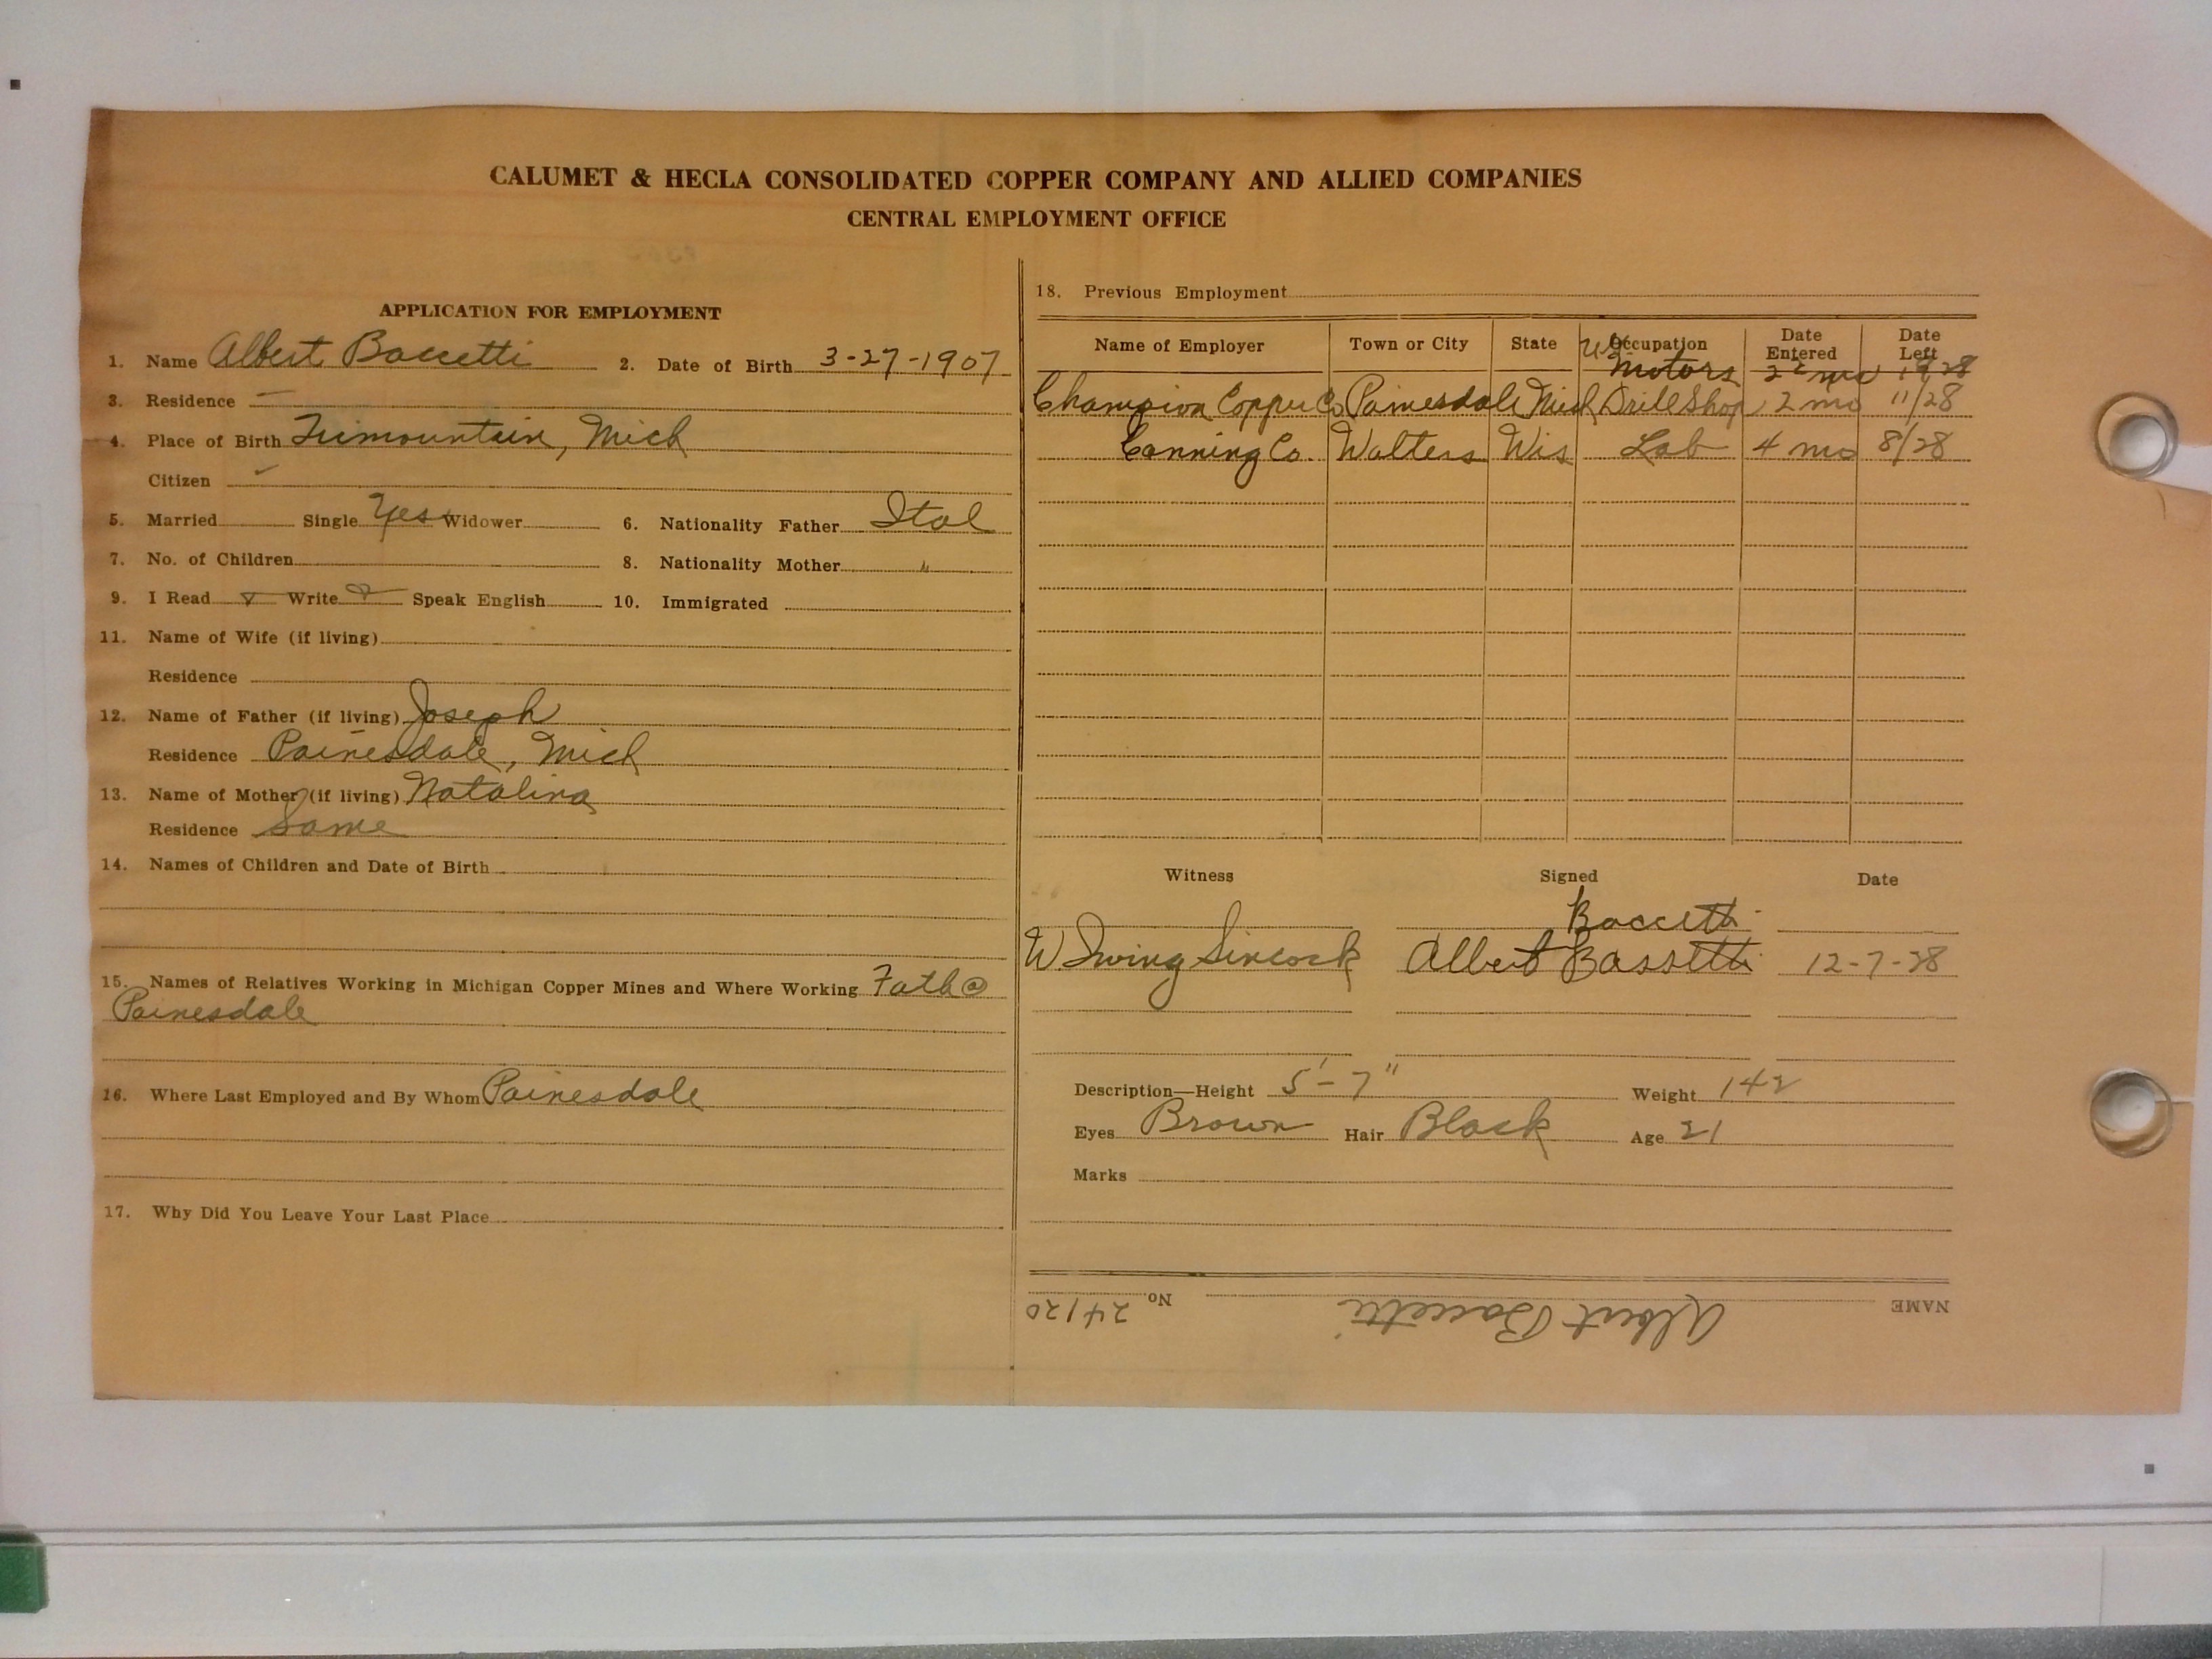 CALUMET & HECLA CONSOLIDATED COPPER COMPANY AND ALLIED COMPANIES
CENTRAL EMPLOYMENT OFFICE
APPLICATION FOR EMPLOYMENT
1. Name Albert Baccetti 2. Date of Birth 3-27-1907
3. Residence —
4. Place of Birth Trimountain, Mich
Citizen ✓
5. Married Single Yes Widower 6. Nationality Father Ital
7. No. of Children 8. Nationality Mother "
9. I Read Write Speak English 10. Immigrated
11. Name of Wife (if living)
Residence
12. Name of Father (if living) Joseph
Residence Painesdale, Mich
13. Name of Mother (if living) Natalina
Residence Same
14. Names of Children and Date of Birth
15. Names of Relatives Working in Michigan Copper Mines and Where Working Fath @
Painesdale
16. Where Last Employed and By Whom Painesdale
17. Why Did You Leave Your Last Place
18. Previous Employment
Name of Employer Town or City State Occupation Date Entered Date Left
Motors 2 mo
Champion Copper Co Painesdale Mich Drill Shop 2 mo 11/28
Canning Co. Walters Wis Lab 4 mo 8/28
Witness Signed Date
Baccetti
W. Irving Sincock Albert Bassetti 12-7-28
Description—Height 5'-7" Weight 142
Eyes Brown Hair Black Age 21
Marks
NAME Albert Baccetti No. 24120